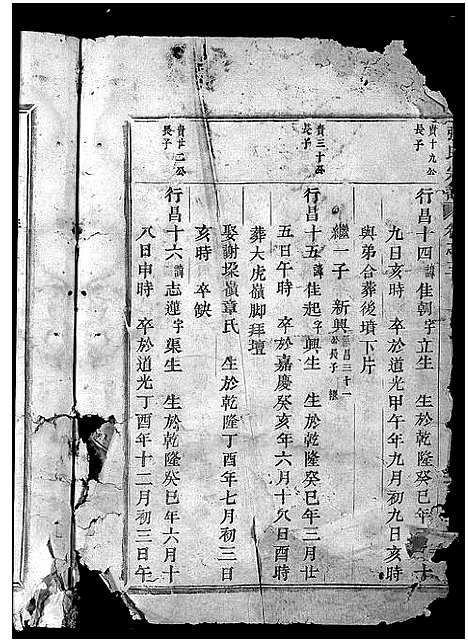 貴十九公
長子
行昌十四諱佳朝字立生 生於乾隆癸巳年 十
九日亥時 卒於道光甲午年九月初九日亥時
與弟合葬後墳下片
繼一子 新興
貴三十公
長子
行昌十五諱佳起字興生 生於乾隆癸巳年三月廿
五日午時 卒於嘉慶癸亥年六月十六日酉時
葬大虎嶺脚拜壇
娶謝墺嶺章氏 生於乾隆丁酉年七月初三日
亥時 卒缺
貴廿二公
長子
行昌十六諱志蓮字渠生 生於乾隆癸巳年六月十
八日申時 卒於道光丁酉年十二月初三日午